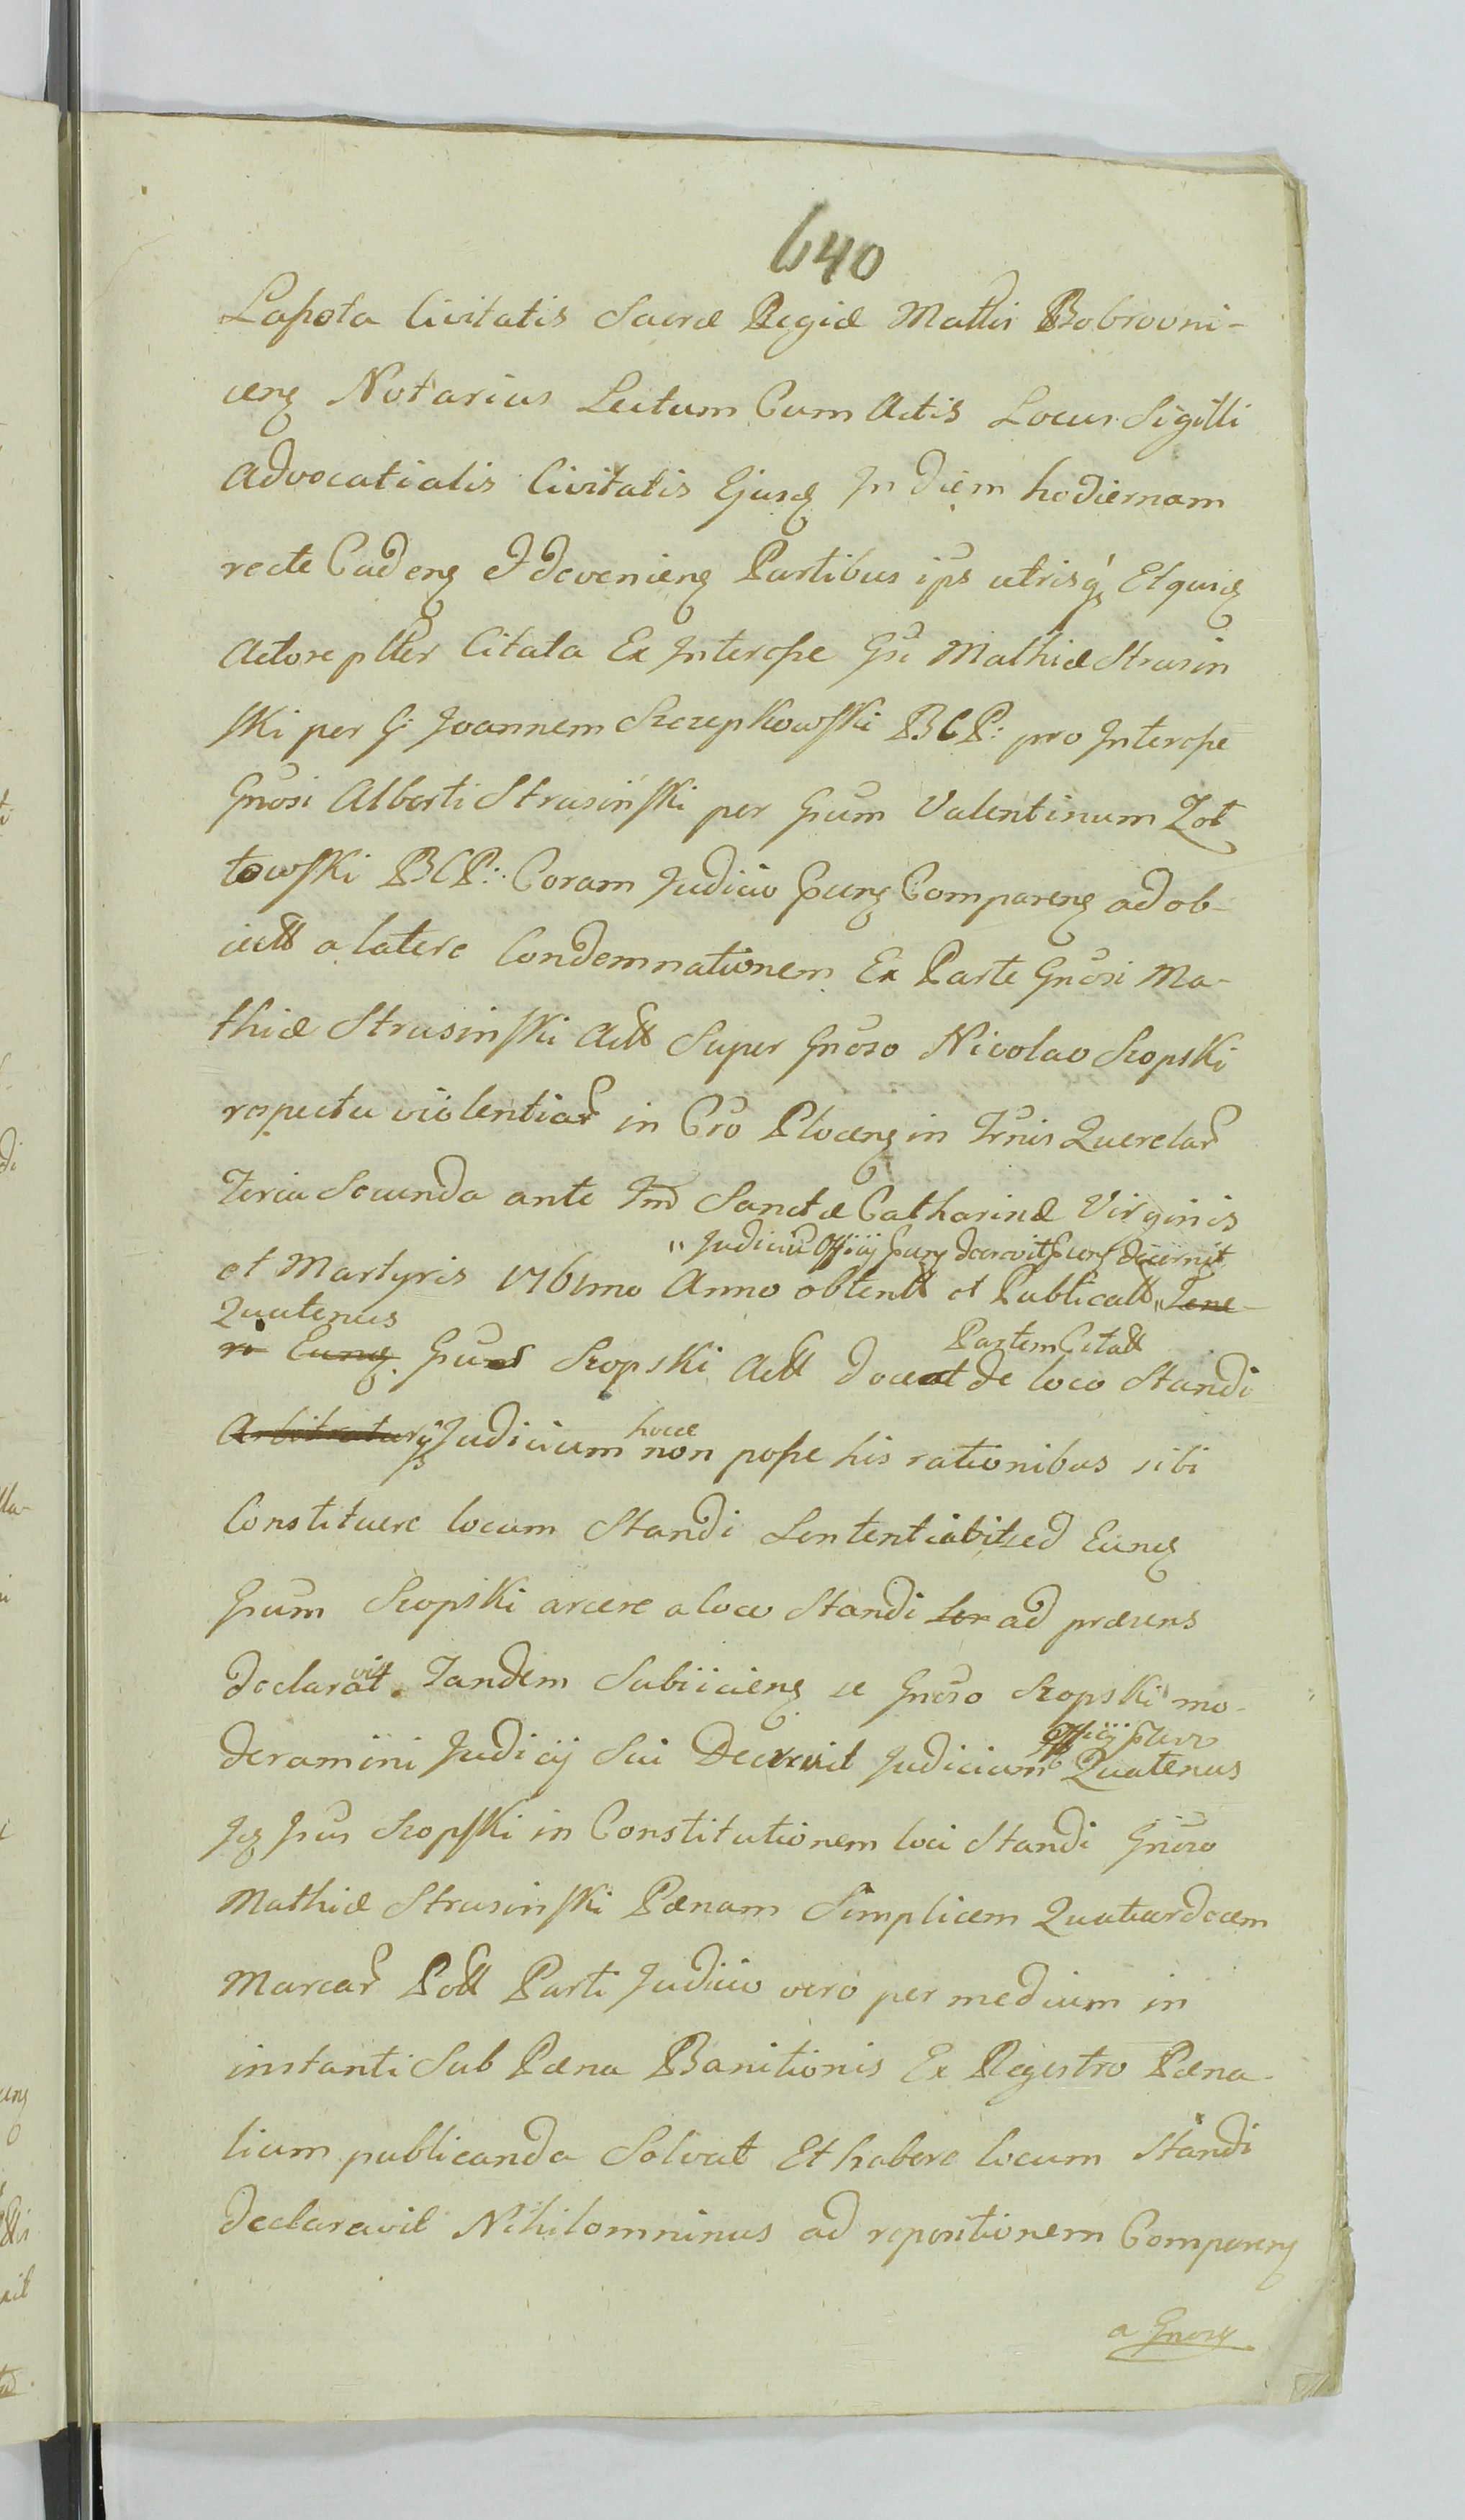 640
Lapota Civitatis Sacræ Regiæ Mattis Bobrowni-
ceng Notarius Lectum Cum Actis Locus Sigilli
Advocatialis Civitatis Ejusd In diem hodiernam
recte Cadeng et deveniens Partibus ips utrisq Et quid
Actore plter Citata Ex Interesse Gsi Mathiæ Strusin
ski per G: Joannem Szczepkowski BCP: pro Interesse
Gnosi Alberti Strusinski per Gsum Valentinum Zoł
towski BCP: Coram Judicio Comparens ad ob-
a latere Condemnationem Ex Parte Gnosi Ma-
thiæ Strusinski Actt Super Gnoso Nicolao Szopski
respectu violentiar in Cro Ploceng in Trnis Querelar
Feria Secunda ante Fm Sanctæ Catharinæ Virginis
Judiciu Officij decrevit decernit
et Martyris 1761mo Anno obtentt et Publicatt Tene-
Quatenus
ri Eund Gsus Szopski Actt doceat de loco Standi
Partem Citatt
Arbitratur Judicium non posse his rationibus sibi
hocce
Constituere locum Standi Sententiavit sed Eund
Gsum Szopski arcere a loco Standi ad præsens
declaravit. Tandem Subiiciens se Gnoso Szopski mo-
deramini Judicij Sui Decrevit Judicium Quatenus
Officij
Id Gsus Szopski in Constitutionem loci Standi Gnoso
Mathiæ Strusinski Pænam Simplicem Quatuordecem
Marcar Poll Parti Judicio vero per medium in
instanti Sub Pæna Banitionis Ex Regestro Pæna-
lium publicanda Solvat Et habere locum Standi
declaravit Nihilominus ad repositionem Comparens
a Gnosis